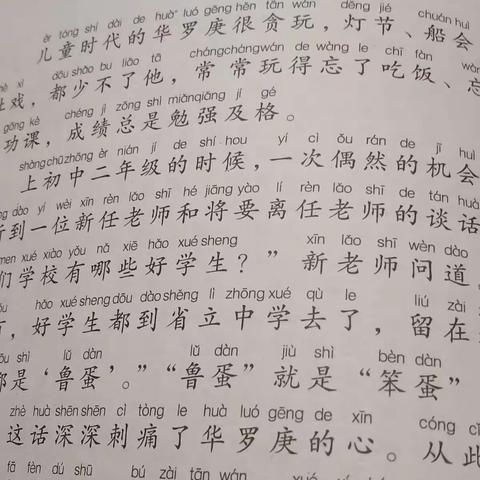 ér tóng shí dài de huà luó gēng hěn tān wán dēng jié chuán huì
儿童时代的华罗庚很贪玩，灯节、船会
xì dōu shǎo bu liǎo tā chángcháng wán de wàng le chī fàn wàng
戏，都少不了他，常常玩得忘了吃饭、忘
gōng kè chéng jì zǒng shì miǎnqiǎng jí gé
功课，成绩总是勉强及格。
shàng chū zhōng èr nián jí de shí hou yí cì ǒu rán de jī huì
上初中二年级的时候，一次偶然的机会
dào yí wèi xīn rèn lǎo shī hé jiāng yào lí rèn lǎo shī de tán huà
听到一位新任老师和将要离任老师的谈话
men xué xiào yǒu nǎ xiē hǎo xué sheng xīn lǎo shī wèn dào
们学校有哪些好学生？”新老师问道。
hǎo xué sheng dōu dào shěng lì zhōng xué qù le liú zài
，好学生都到省立中学去了，留在
shì lǔ dàn lǔ dàn jiù shì bèn dàn
都是‘鲁蛋’。”“鲁蛋”就是“笨蛋”
zhè huà shēn shēn cì tòng le huà luó gēng de xīn cóng cǐ
这话深深刺痛了华罗庚的心。从此
fā fèn dú shū bú zài tān wán